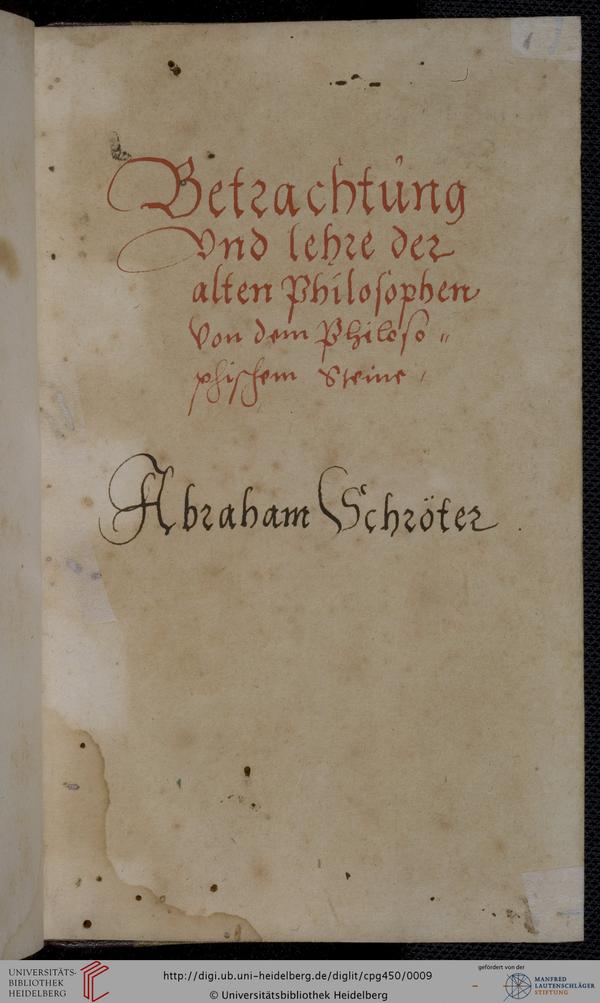 1
Betrachtung
Vnd lehre der
alten Philosophen
Von dem Philoso„
phischem Steine /
Abraham Schröter .
UNIVERSITÄTS-
BIBLIOTHEK
HEIDELBERG
http://digi.ub.uni-heidelberg.de/diglit/cpg450/0009
© Universitätsbibliothek Heidelberg
gefördert von der
MANFRED
LAUTENSCHLÄGER
STIFTUNG